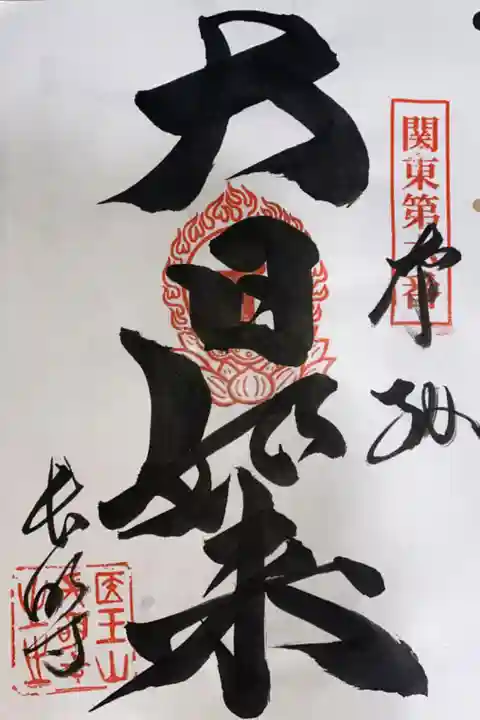 関東第 番
奉 拝
大日如来
長明寺
医王山